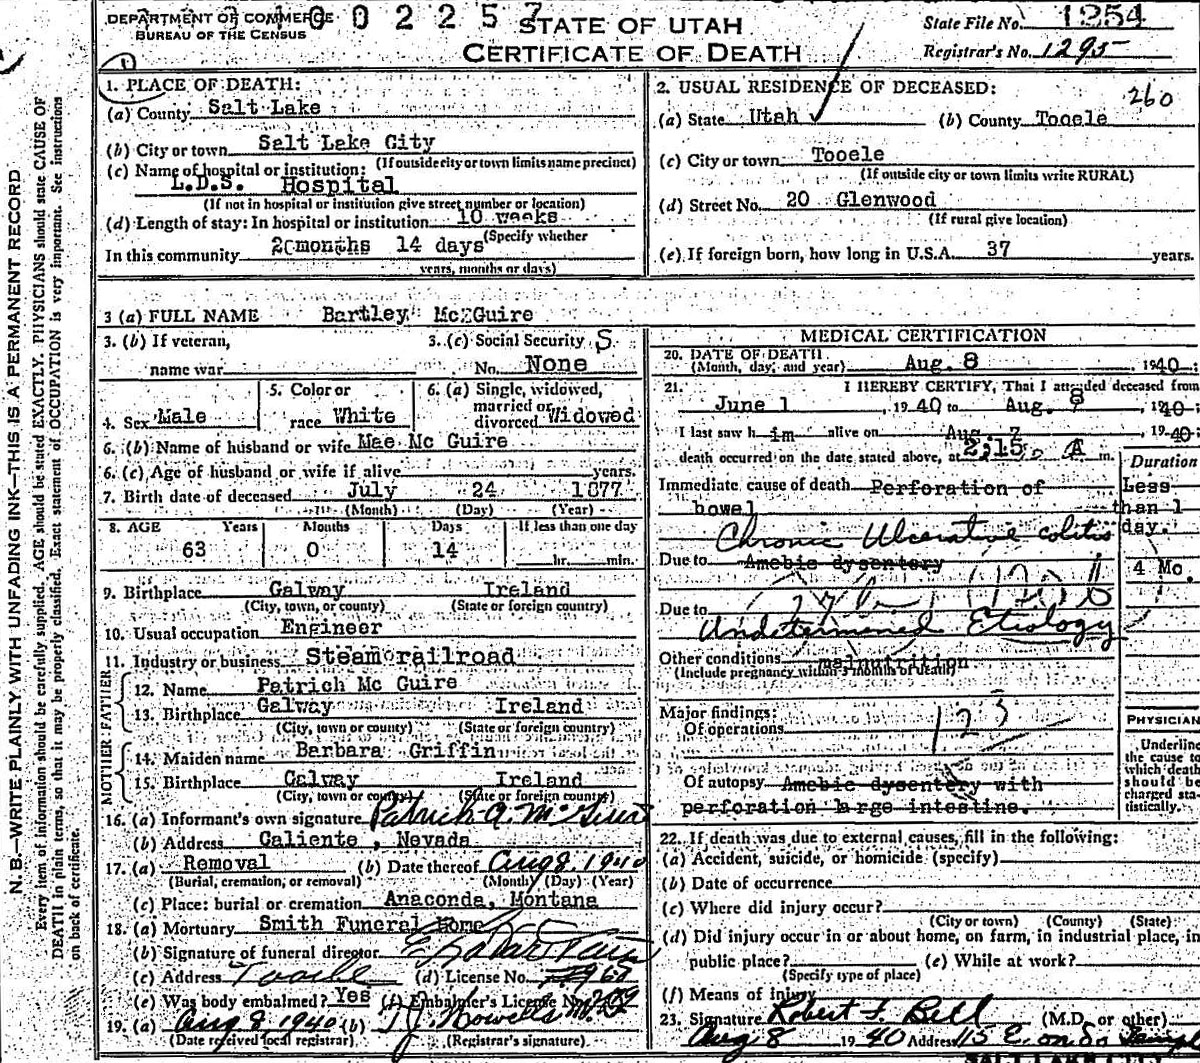 DEPARTMENT OF COMMERCE
BUREAU OF THE CENSUS
0 0 2 2 5 7
STATE OF UTAH
CERTIFICATE OF DEATH
State File No. 1254
Registrar's No. 1295
1. PLACE OF DEATH:
(a) County Salt Lake
(b) City or town Salt Lake City
(If outside city or town limits name precinct)
(c) Name of hospital or institution:
L.D.S. Hospital
(If not in hospital or institution give street number or location)
(d) Length of stay: In hospital or institution 10 weeks
(Specify whether
In this community 2 months 14 days
years, months or days)
2. USUAL RESIDENCE OF DECEASED:
260
(a) State Utah (b) County Tooele
(c) City or town Tooele
(If outside city or town limits write RURAL)
(d) Street No. 20 Glenwood
(If rural give location)
(e) If foreign born, how long in U.S.A. 37 years.
3 (a) FULL NAME Bartley McGuire
3. (b) If veteran, name war
3. (c) Social Security S
No. None
4. Sex Male
5. Color or race White
6. (a) Single, widowed, married or divorced Widowed
6. (b) Name of husband or wife Mae Mc Guire
6. (c) Age of husband or wife if alive years.
7. Birth date of deceased July 24 1877
(Month) (Day) (Year)
8. AGE Years Months Days If less than one day
63 0 14 hr. min.
9. Birthplace Galway Ireland
(City, town, or county) (State or foreign country)
10. Usual occupation Engineer
11. Industry or business Steam railroad
FATHER
12. Name Patrich Mc Guire
13. Birthplace Galway Ireland
(City, town or county) (State or foreign country)
MOTHER
14. Maiden name Barbara Griffin
15. Birthplace Galway Ireland
(City, town or county) (State or foreign country)
16. (a) Informant's own signature Patrick A. McGuire
(b) Address Caliente, Nevada
17. (a) Removal (b) Date thereof Aug 8, 1940
(Burial, cremation, or removal) (Month) (Day) (Year)
(c) Place: burial or cremation Anaconda, Montana
18. (a) Mortuary Smith Funeral Home
(b) Signature of funeral director
(c) Address Tooele (d) License No.
(e) Was body embalmed? Yes (f) Embalmer's License No.
19. (a) Aug 8, 1940 (b)
(Date received local registrar) (Registrar's signature)
MEDICAL CERTIFICATION
20. DATE OF DEATH
(Month, day, and year) Aug. 8 1940
21. I HEREBY CERTIFY, That I attended deceased from
June 1, 1940 to Aug. 8, 1940
I last saw him alive on Aug. 7 1940
death occurred on the date stated above, at 2:15 A m.
Duration
Immediate cause of death Perforation of bowel
Less than 1 day.
Chronic Ulcerative colitis
Due to Amebic dysentery
4 Mo.
Due to
120 b
Undetermined Etiology
Other conditions malnutrition
(Include pregnancy within 3 months of death)
Major findings:
Of operations
123
Of autopsy Amebic dysentery with
perforation large intestine.
PHYSICIAN
Underline
the cause to
which death
should be
charged sta-
tistically.
22. If death was due to external causes, fill in the following:
(a) Accident, suicide, or homicide (specify)
(b) Date of occurrence
(c) Where did injury occur?
(City or town) (County) (State)
(d) Did injury occur in or about home, on farm, in industrial place, in
public place? (e) While at work?
(Specify type of place)
(f) Means of injury
23. Signature Robert F. Bell (M.D. or other)
Aug. 8 1940 Address 115 E. on So.
N. B.—WRITE PLAINLY WITH UNFADING INK—THIS IS A PERMANENT RECORD
Every item of information should be carefully supplied. AGE should be stated EXACTLY. PHYSICIANS should state CAUSE OF
DEATH in plain terms, so that it may be properly classified. Exact statement of OCCUPATION is very important. See instructions
on back of certificate.